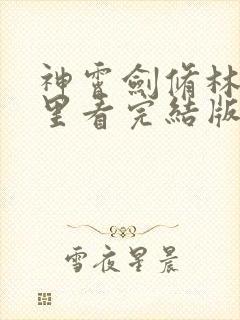 神霄劍脩林
里看完結版
雪夜星晨